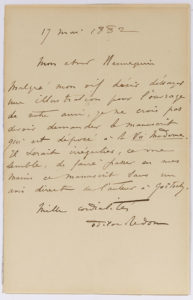 17 mai 1882
Mon cher Hennequin
Malgré mon vif désir d'essayer
une illustration pour l'ouvrage
de votre ami, je ne crois pas
devoir demander le manuscrit
qui est déposé à la Vie Moderne.
Il serait irrégulier, ce me
semble, de faire passer en mes
mains ce manuscrit sans un
avis direct de l'auteur à
Mille cordialités
Odilon Redon